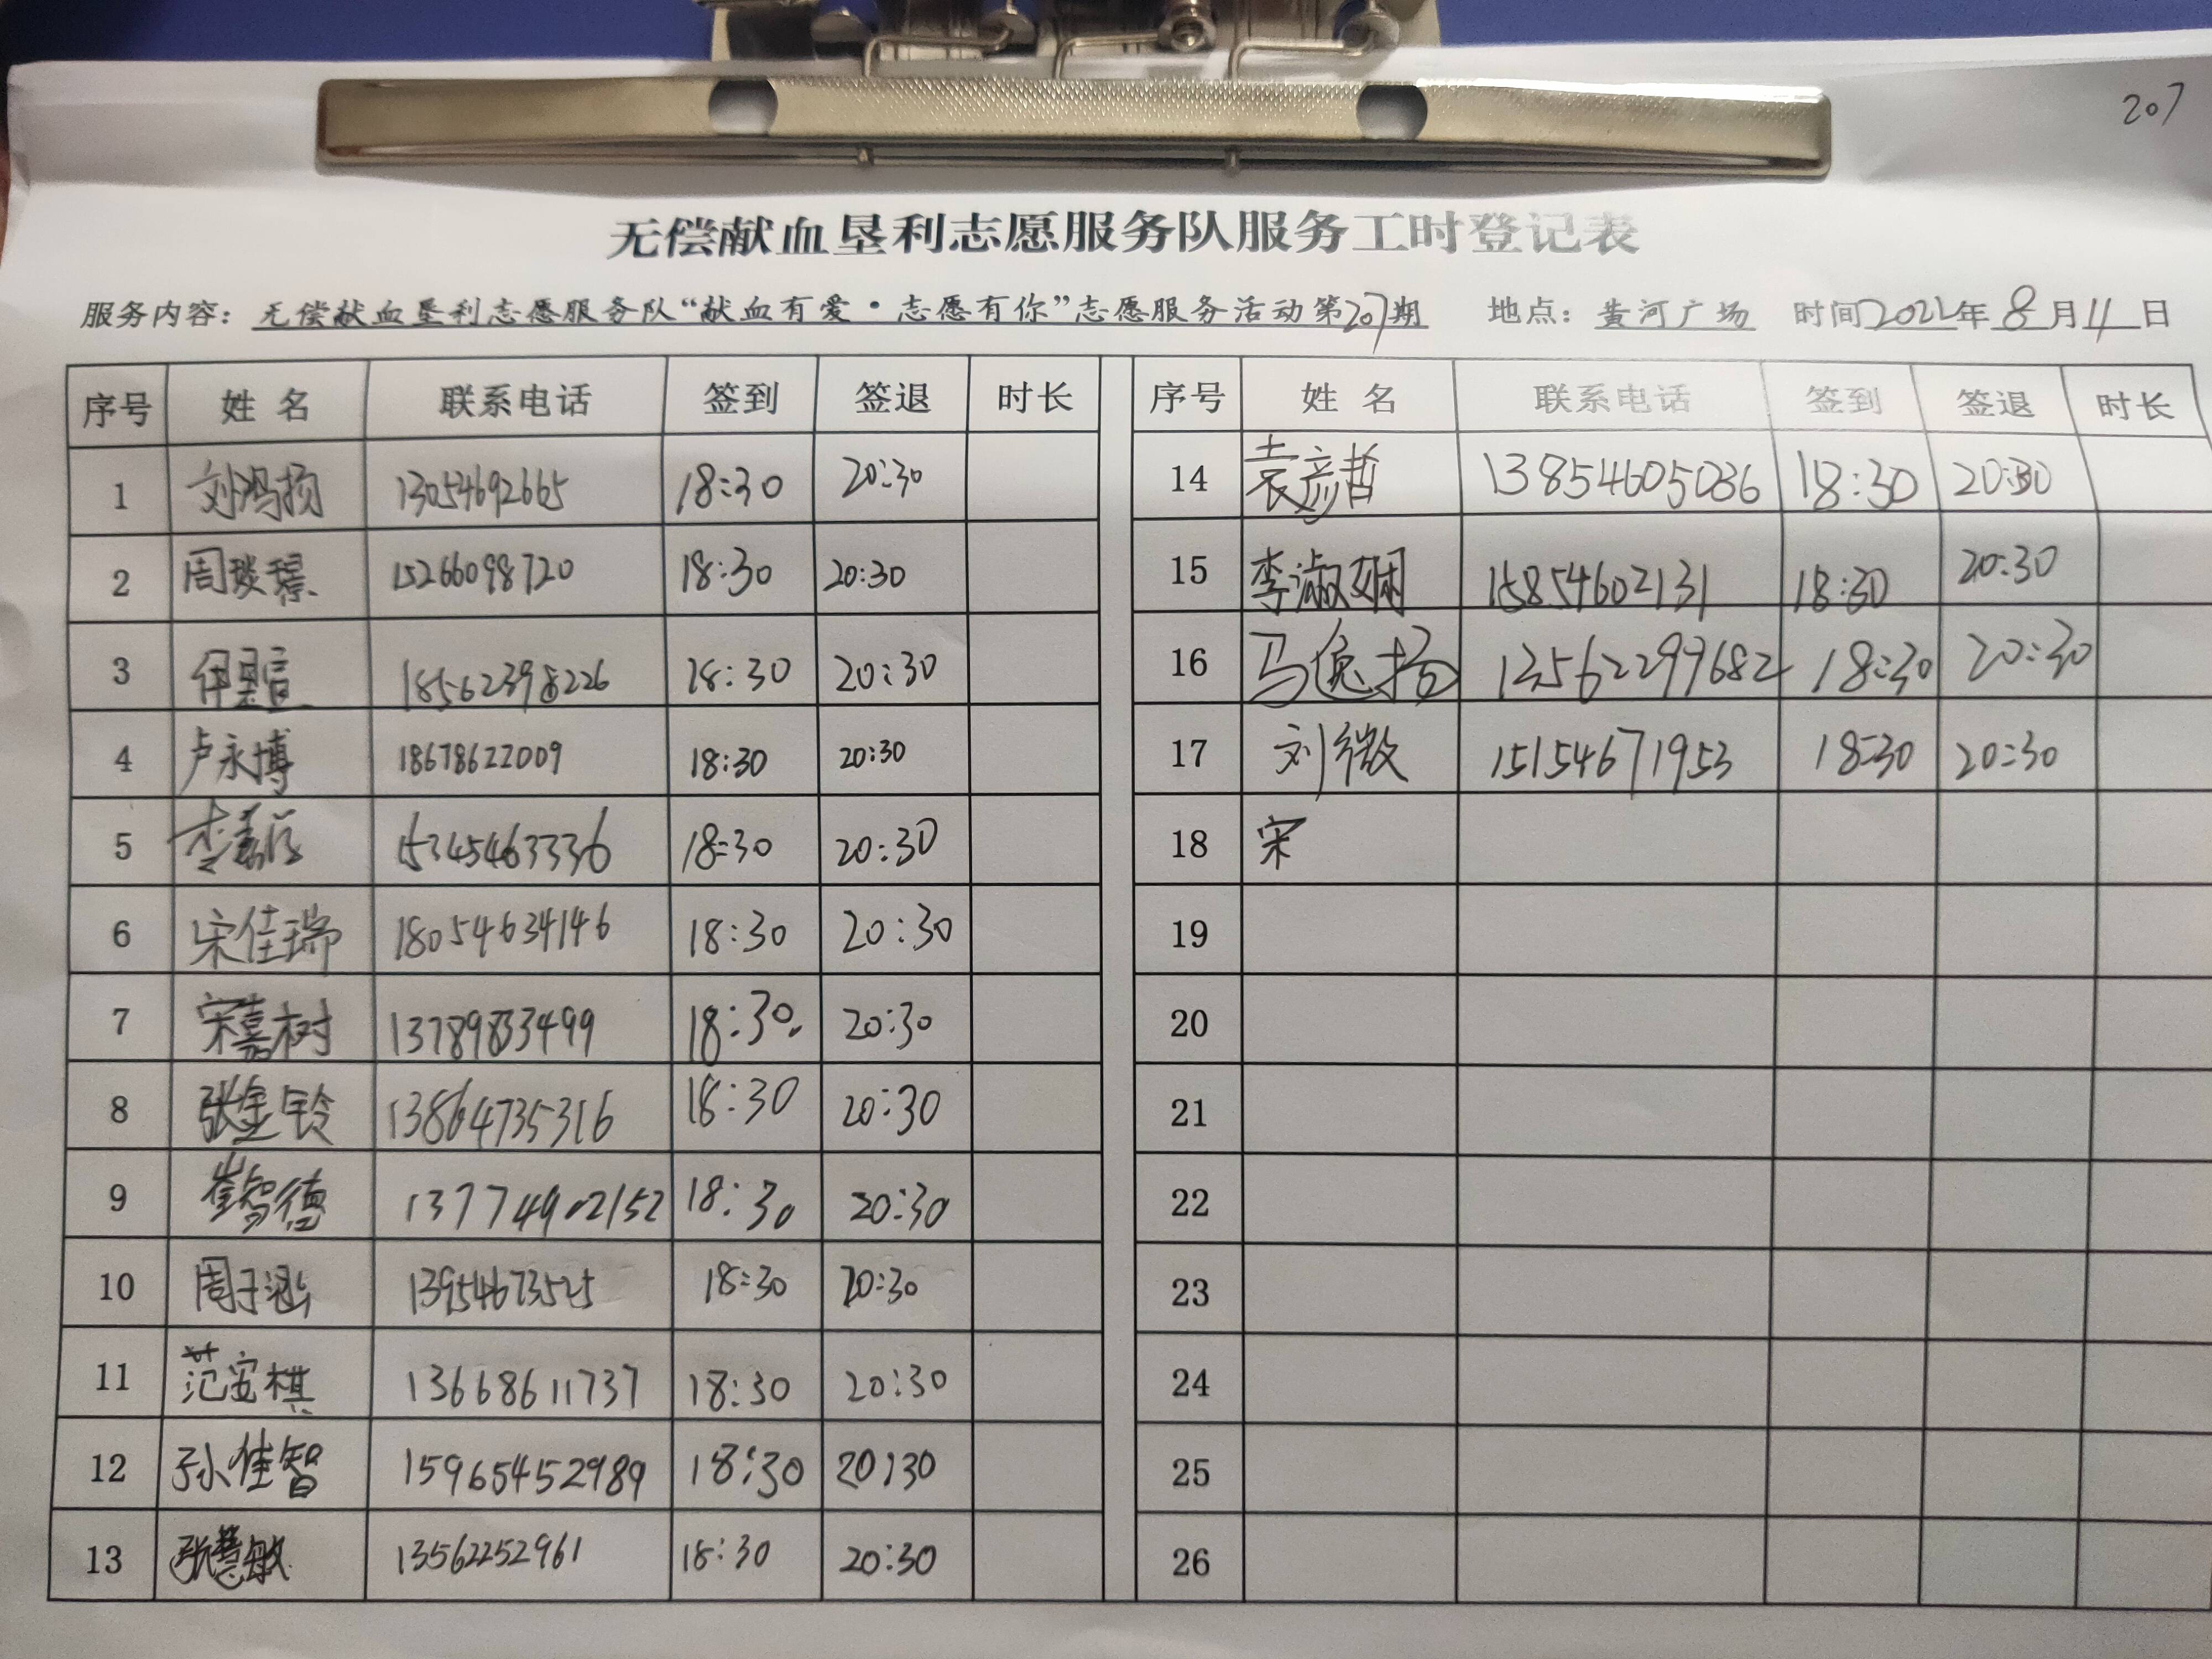 207
无偿献血垦利志愿服务队服务工时登记表
服务内容：无偿献血垦利志愿服务队“献血有爱·志愿有你”志愿服务活动第207期 地点：黄河广场 时间2022年8月11日
序号 姓名 联系电话 签到 签退 时长 序号 姓名 联系电话 签到 签退 时长
1 刘鸿扬 13054692665 18:30 20:30 14 袁彦哲 13854605036 18:30 20:30
2 周琰璟 15266098720 18:30 20:30 15 李淑娴 15854602131 18:30 20:30
3 18562398226 18:30 20:30 16 马逸扬 13562299682 18:30 20:30
4 卢永博 18678622009 18:30 20:30 17 刘微 15154671953 18:30 20:30
5 15345463336 18:30 20:30 18 宋
6 宋佳瑞 18054634146 18:30 20:30 19
7 宋嘉树 13789833499 18:30. 20:30 20
8 张宝铃 13864735316 18:30 20:30 21
9 崔智德 18:30 20:30 22
10 周子涵 13954673525 18:30 20:30 23
11 范宝棋 13668611737 18:30 20:30 24
12 孙佳智 15965452989 18:30 20:30 25
13 张慧敏 13562252961 18:30 20:30 26